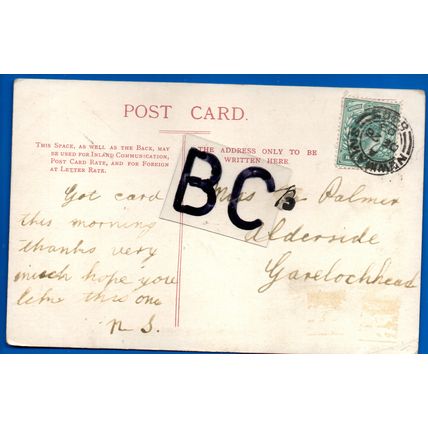 POST CARD.
THIS SPACE, AS WELL AS THE BACK, MAY
BE USED FOR INLAND COMMUNICATION,
POST CARD RATE, AND FOR FOREIGN
AT LETTER RATE.
THE ADDRESS ONLY TO BE
WRITTEN HERE.
BC
Got card
this morning
thanks very
much hope you
like this one
N S.
Miss Palmer
Alderside
Garelochhead